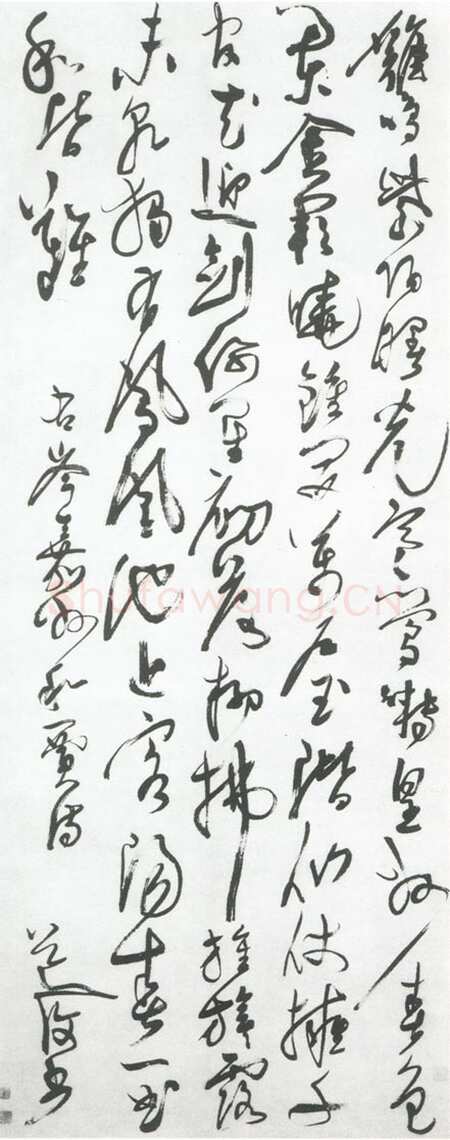 雞鳴紫陌曙光寒鶯囀皇州春色
闌金闕曉鍾開萬戶玉階仙仗擁千
官花迎劍佩星初落柳拂旌旂露
未乾獨有鳳凰池上客陽春一曲
和皆難
右岑嘉州和賈詩 道復書
Shufawang.CN